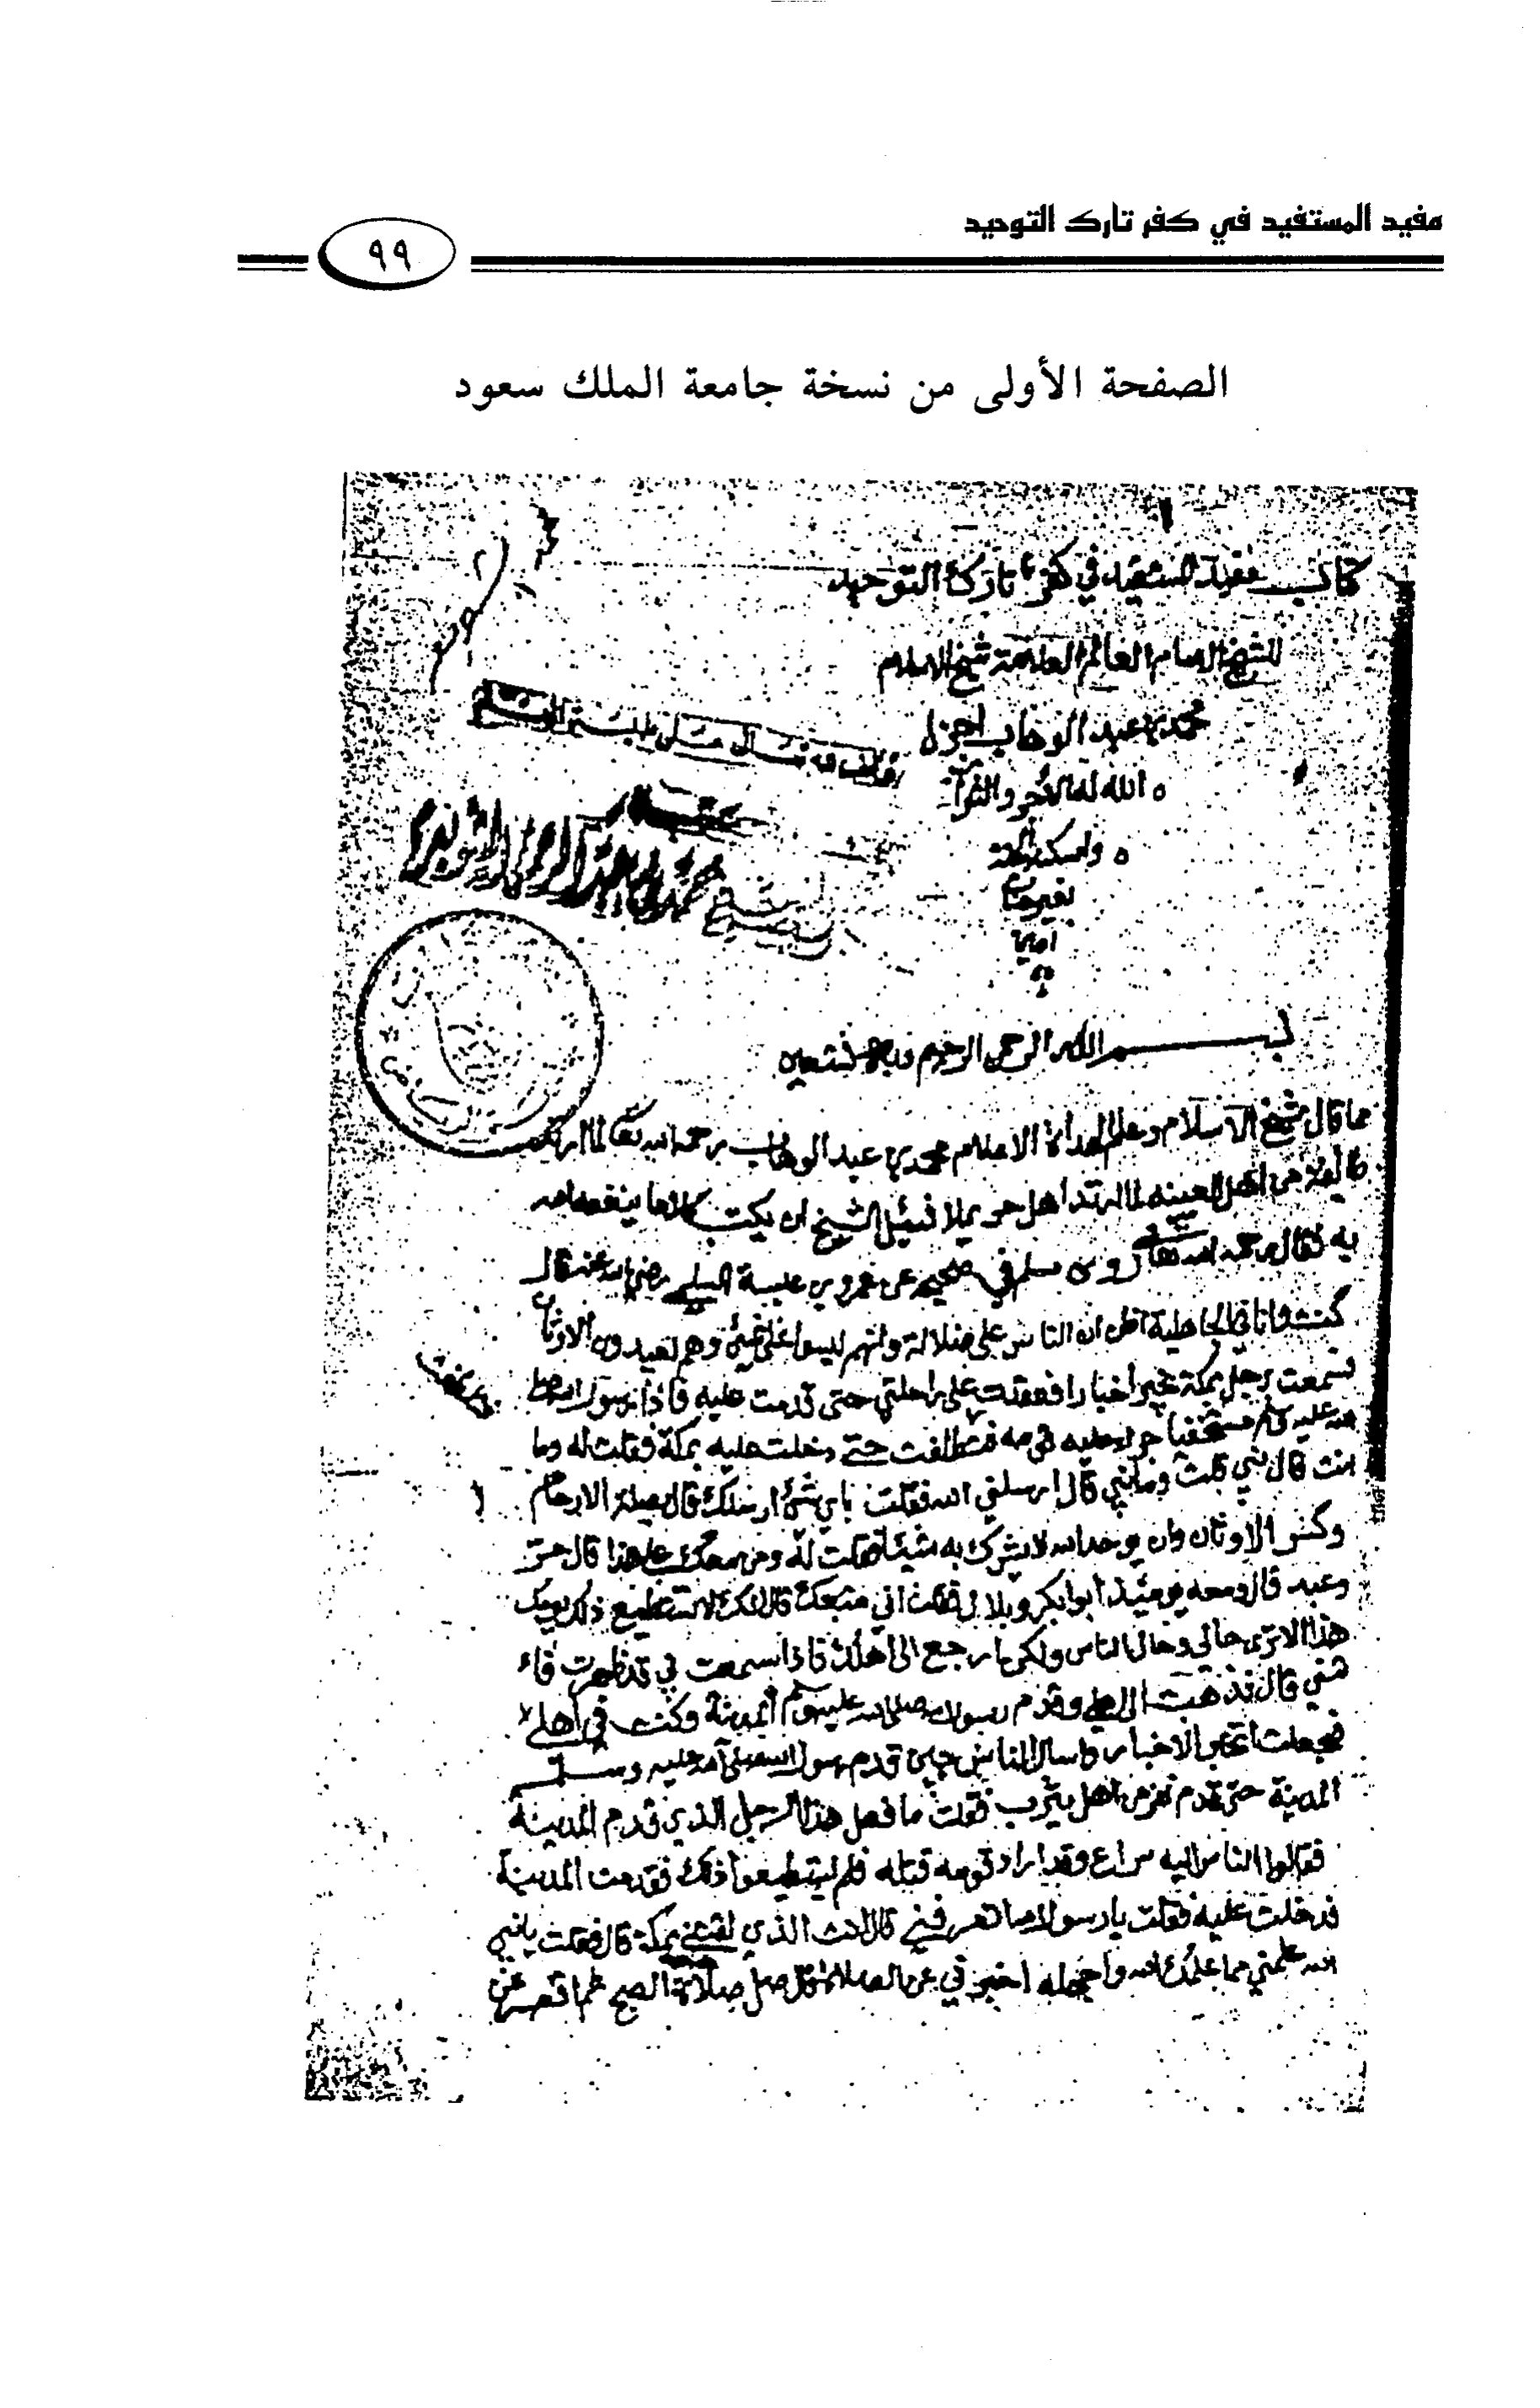 مفيد المستفيد في كفر تارك التوحيد
٩٩
الصفحة الأولى من نسخة جامعة الملك سعود
كتاب مفيد المستفيد في كفر تارك التوحيد
للشيخ الامام العالم العلامة شيخ الاسلام
محمد بن عبد الوهاب اجزل
الله له الاجر والثواب
واسكنه الجنة
بغير حساب
امين
بسم الله الرحمن الرحيم وبه نستعين
مما قال شيخ الاسلام وعلم الهداة الاعلام محمد بن عبد الوهاب رحمه الله تعالى لما ارتد
طائفة من اهل العيينه لما ارتد اهل حريملا فسئل الشيخ ان يكتب كلاما ينفعه الله
به فقال رحمه الله تعالى روى مسلم في صحيحه عن عمرو بن عبسة السلمي رضي الله عنه قال
كنت وانا في الجاهلية اظن ان الناس على ضلالة وانهم ليسوا على شيئ وهم يعبدون الاوثان
فسمعت برجل بمكة يخبر اخبارا فقعدت على راحلتي حتى قدمت عليه فاذا رسول الله صلى
الله عليه وسلم مستخفيا جرءاء عليه قومه فتلطفت حتى دخلت عليه بمكة فقلت له وما
انت قال نبي قلت وما نبي قال ارسلني الله فقلت باي شئ ارسلك قال بصلة الارحام
وكسر الاوثان وان يوحد الله لا يشرك به شيئا فقلت له ومن معك على هذا قال حر
وعبد قال ومعه يومئذ ابوا بكر وبلال فقلت اني متبعك قال انك لا تستطيع ذلك يومك
هذا الا ترى حالي وحال الناس ولكن ارجع الى اهلك فاذا سمعت بي قد ظهرت فاء
تني قال فذهبت الى اهلي وقدم رسول الله صلى الله عليه وسلم المدينة وكنت في اهلي
فجعلت اتخبر الاخبار واسال الناس حين قدم رسول الله صلى الله عليه وسلم
المدينة حتى قدم نفر من اهل يثرب فقلت ما فعل هذا الرجل الذي قدم المدينة
فقالوا الناس اليه سراع وقد اراد قومه قتله فلم يستطيعوا ذلك فقدمت المدينة
فدخلت عليه فقلت يا رسول الله اتعرفني قال انت الذي لقيتني بمكة قال فقلت يا نبي
الله علمني مما علمك الله واجهله اخبرني عن الصلاة قال صل صلاة الصبح ثم اقصر عن